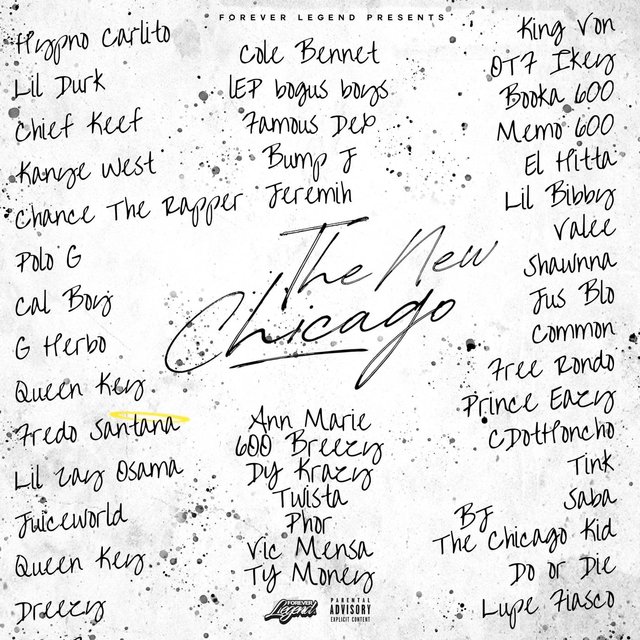 FOREVER LEGEND PRESENTS
Hypno Carlito
Lil Durk
Chief Keef
Kanye West
Chance The Rapper
Polo G
Cal Boy
G Herbo
Queen Key
Fredo Santana
Lil Zay Osama
Juiceworld
Queen Key
Dreezy
Cole Bennet
lEP bogus boys
Famous Dex
Bump J
Jeremih
The New
Chicago
Ann Marie
600 Breezy
Dij Krazy
Twista
Phor
Vic Mensa
Ty Money
King Von
OT7 Ikey
Booka 600
Memo 600
El Hitta
Lil Bibby
Valee
Shawnna
Jus Blo
Common
Free Rondo
Prince Eazy
CDotHoncho
Tink
Saba
BJ
The Chicago Kid
Do or Die
Lupe Fiasco
FOREVER
Legend
PARENTAL
ADVISORY
EXPLICIT CONTENT